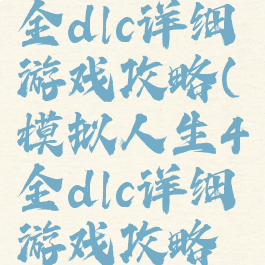 全dlc详细
游戏攻略(
模拟人生4
全dlc详细
游戏攻略